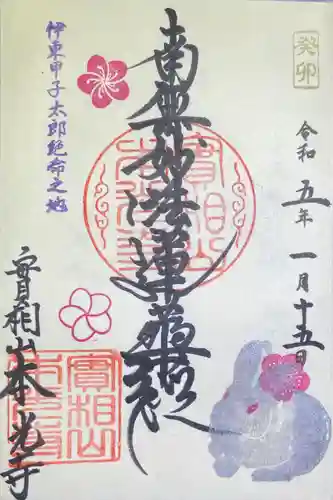 癸卯
令和五年一月十五日
南無妙法蓮華経
伊東甲子太郎絶命之地
實相山本光寺
實相山
實相山